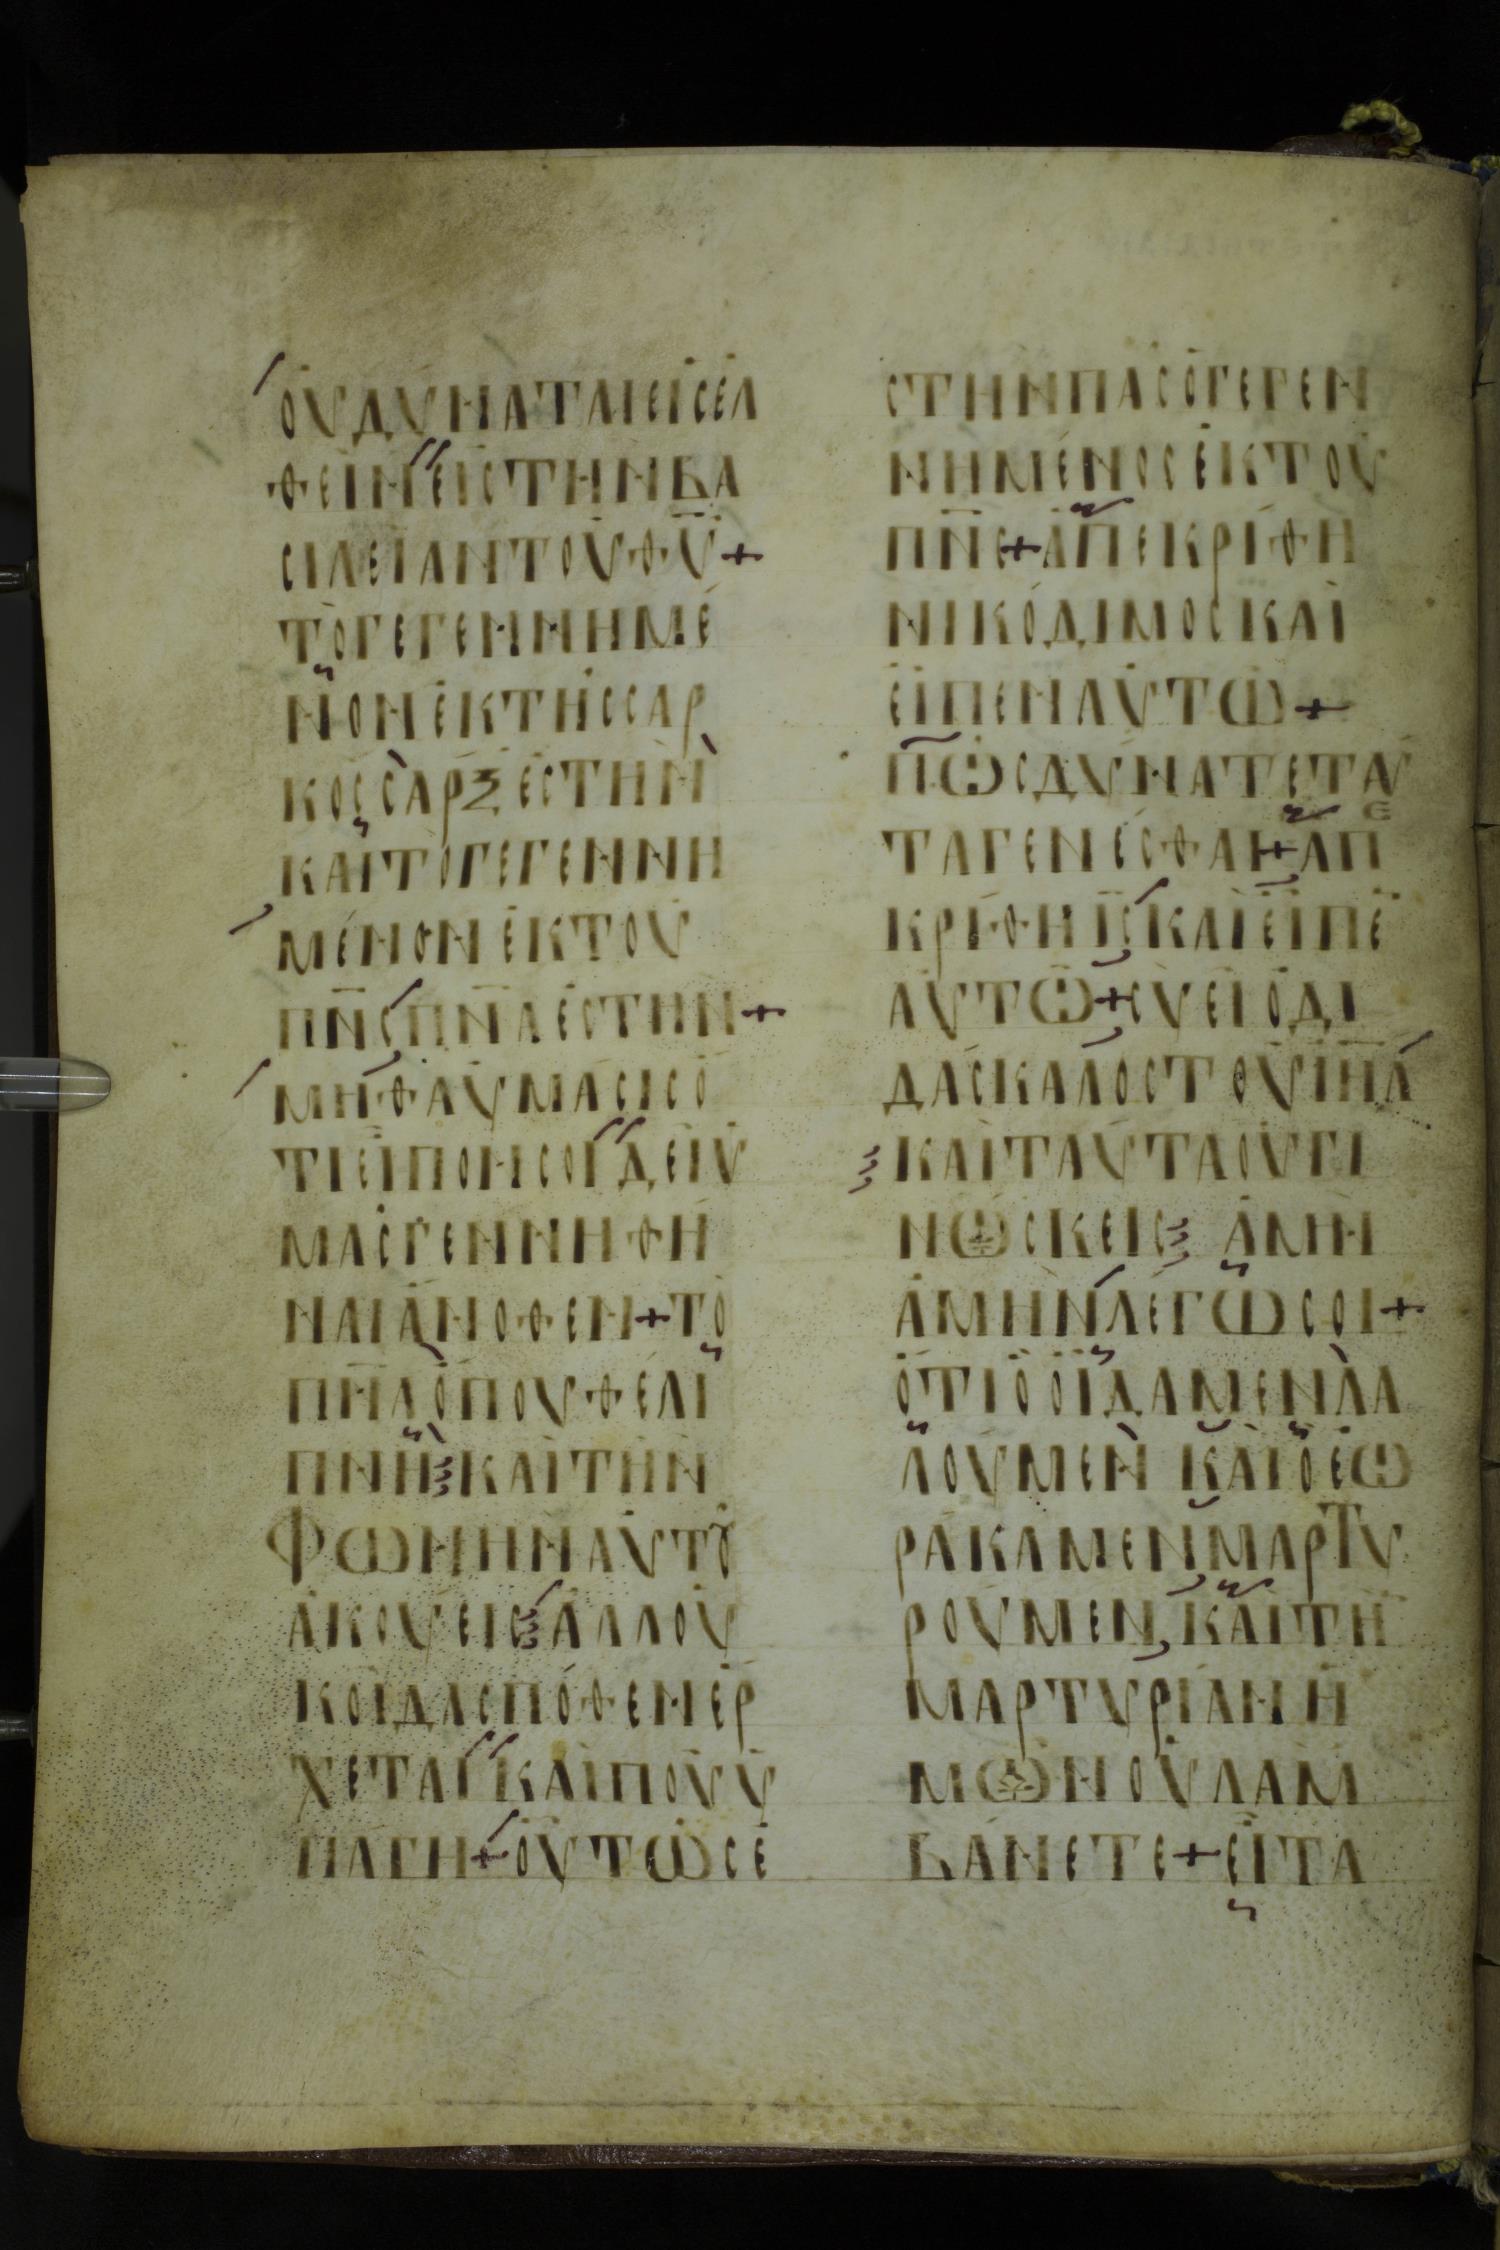 ΟΥΔΥΝΑΤΑΙΕΙСΕΛ
ΘΕΙΝΕΙСΤΗΝΒΑ
СΙΛΕΙΑΝΤΟΥΘΥ̅+
ΤΟΓΕΓΕΝΝΗΜΕ
ΝΟΝΕΚΤΗССΑΡ
ΚΟССΑΡΞΕСΤΗΝ
ΚΑΙΤΟΓΕΓΕΝΝΗ
ΜΕΝΟΝΕΚΤΟΥ
ΠΝ̅СΠΝ̅ΑΕСΤΗΝ+
ΜΗΘΑΥΜΑСΙСΟ
ΤΙΕΙΠΟΝСΟΙΔΕΙΥ
ΜΑСΓΕΝΝΗΘΗ
ΝΑΙΑΝΟΘΕΝ+ΤΟ
ΠΝ̅ΑΟΠΟΥΘΕΛΙ
ΠΝΗΚΑΙΤΗΝ
ΦΩΝΗΝΑΥΤΟΥ
ΑΚΟΥΕΙСΑΛΛΟΥ
ΚΟΙΔΑСΠΟΘΕΝΕΡ
ΧΕΤΑΙΚΑΙΠΟΥΥ
ΠΑΓΗ+ΟΥΤΩСΕ
СΤΗΝΠΑСΟΓΕΓΕΝ
ΝΗΜΕΝΟСΕΚΤΟΥ
ΠΝ̅С+ΑΠΕΚΡΙΘΗ
ΝΙΚΟΔΙΜΟСΚΑΙ
ΕΙΠΕΝΑΥΤΩ+
ΠΩСΔΥΝΑΤΕΤΑΥ
ΤΑΓΕΝΕСΘΑΗ+ΑΠΕ
ΚΡΙΘΗΙ̅СΚΑΙΕΙΠΕ
ΑΥΤΩ+СΥΕΙΟΔΙ
ΔΑСΚΑΛΟСΤΟΥΙΗ̅Λ
ΚΑΙΤΑΥΤΑΟΥΓΙ
ΝΩСΚΕΙС ΑΜΗΝ
ΑΜΗΝΛΕΓΩСΟΙ+
ΟΤΙΟΟΙΔΑΜΕΝΛΑ
ΛΟΥΜΕΝ ΚΑΙΟΕΩ
ΡΑΚΑΜΕΝΜΑΡΤΥ
ΡΟΥΜΕΝ,ΚΑΙΤΗ
ΜΑΡΤΥΡΙΑΝΗ
ΜΩΝΟΥΛΑΜ
ΒΑΝΕΤΕ+ΕΙΤΑ